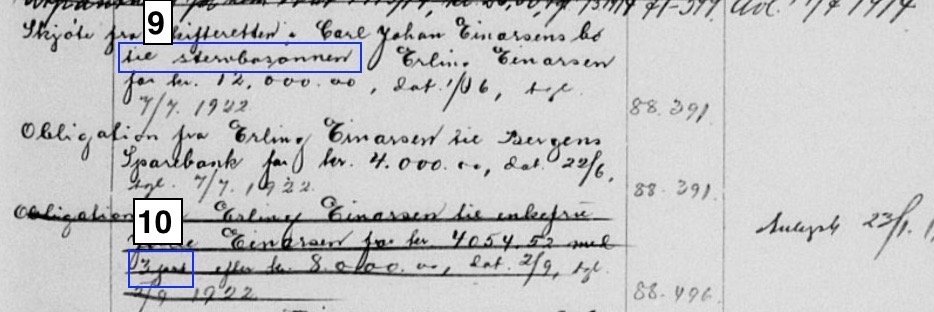 9
Skjøte fra skifteretten i Carl Johan Einarsens bo
til stervbosønnen Erling Einarsen
for kr. 12,000.00, dat. 1/6, tgl.
7/7. 1922 88.391
Obligation fra Erling Einarsen til Bergens
Sparebank for kr. 4.000.00, dat. 22/6,
tgl. 7/7. 1922 88.391
Obligation Erling Einarsen til enkefru
10
Einarsen for kr 4054.52 med
3 prt efter kr. 8.000.00, dat. 2/9, tgl.
1922 88.496
Avlyst